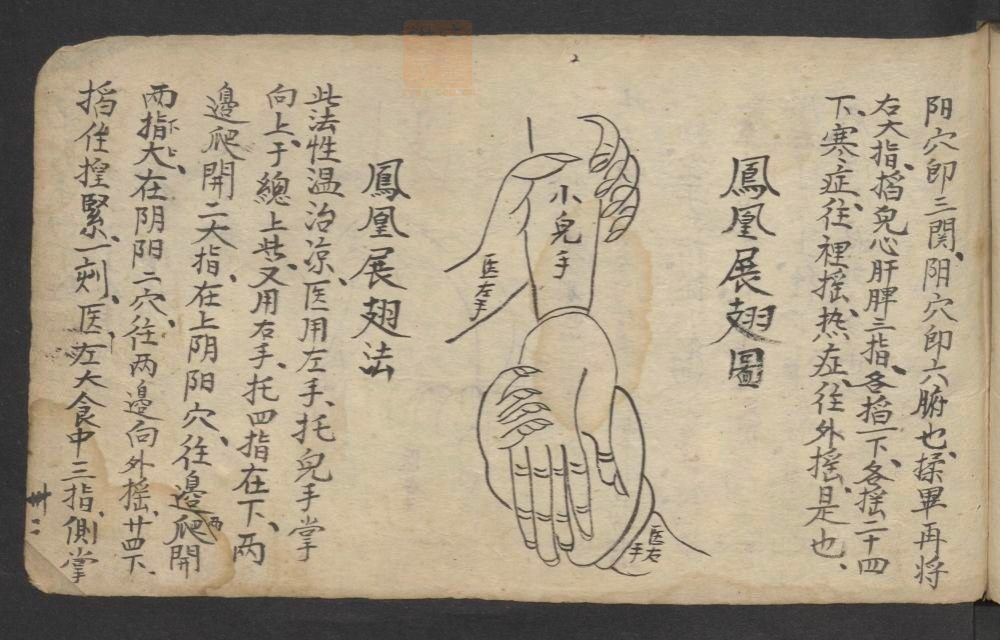 阳穴即三関、阴穴即六腑也、揉畢再将
右大指、掐兒心肝脾三指、各掐一下、各摇二十四
下、寒症、往裡摇、热症、往外摇、是也、
鳳凰展翅圖
小兒手
医左手
医右手
鳳凰展翅法
此法性温治凉、医用左手、托兒手掌
向上、于總上些、又用右手、托四指在下、两
邊爬開二大指、在上阴阳穴、往两邊爬開
两指大、在阴阳二穴、往两邊向外摇、廿四下、
掐住揑緊一刻、医左大食中三指、側掌
卅二